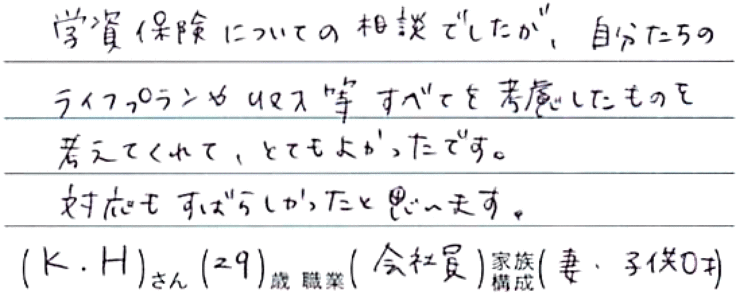 学資保険についての相談でしたが、自分たちの
ライフプランやリスク等すべてを考慮したものを
考えてくれて、とてもよかったです。
対応もすばらしかったと思います。
(K.H)さん(29)歳 職業(会社員)家族構成(妻・子供0才)